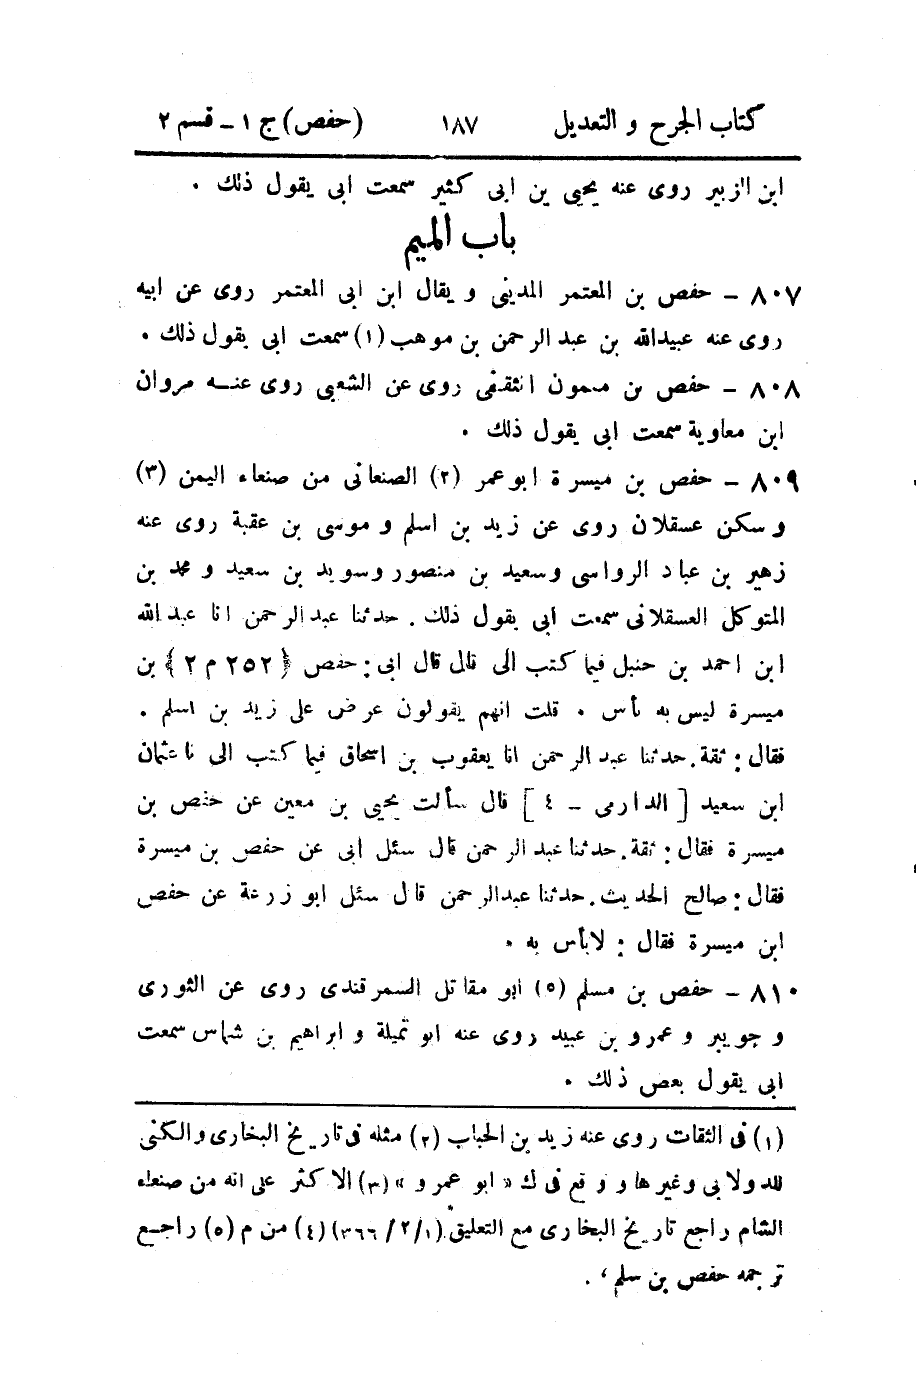 كتاب الجرح و التعديل ١٨٧ (حفص) ج ١ - قسم ٢
ابن الزبير روى عنه يحيى بن ابى كثير سمعت ابى يقول ذلك .
باب الميم
٨٠٧ - حفص بن المعتمر المدينى و يقال ابن ابى المعتمر روى عن ابيه
روى عنه عبيدالله بن عبد الرحمن بن موهب (١) سمعت ابى يقول ذلك .
٨٠٨ - حفص بن ميمون الثقفى روى عن الشعبى روى عنه مروان
ابن معاوية سمعت ابى يقول ذلك .
٨٠٩ - حفص بن ميسرة ابو عمر (٢) الصنعانى من صنعاء اليمن (٣)
و سكن عسقلان روى عن زيد بن اسلم و موسى بن عقبة روى عنه
زهير بن عباد الرواسى وسعيد بن منصور وسويد بن سعيد و محمد بن
المتوكل العسقلانى سمعت ابى يقول ذلك . حدثنا عبد الرحمن انا عبد الله
ابن احمد بن حنبل فيما كتب الى قال قال ابى : حفص { ٢٥٢ م ٢ } بن
ميسرة ليس به بأس . قلت انهم يقولون عرض على زيد بن اسلم .
فقال : ثقة . حدثنا عبد الرحمن انا يعقوب بن اسحاق فيما كتب الى نا عثمان
ابن سعيد [ الدارمى - ٤ ] قال سألت يحيى بن معين عن حفص بن
ميسرة فقال : ثقة . حدثنا عبد الرحمن قال سئل ابى عن حفص بن ميسرة
فقال : صالح الحديث . حدثنا عبدالرحمن قال سئل ابو زرعة عن حفص
ابن ميسرة فقال : لابأس به .
٨١٠ - حفص بن مسلم (٥) ابو مقاتل السمرقندى روى عن الثورى
و جويبر و عمرو بن عبيد روى عنه ابو تميلة و ابراهيم بن شماس سمعت
ابى يقول بعض ذلك .
(١) فى الثقات روى عنه زيد بن الحباب (٢) مثله فى تاريخ البخارى والكنى
للدولابى وغيرها ووقع فى ك « ابو عمرو » (٣) الاكثر على انه من صنعاء
الشام راجع تاريخ البخارى مع التعليق (١ /٢ / ٣٦٦) (٤) من م (٥) راجع
ترجمه حفص بن سلم ، .